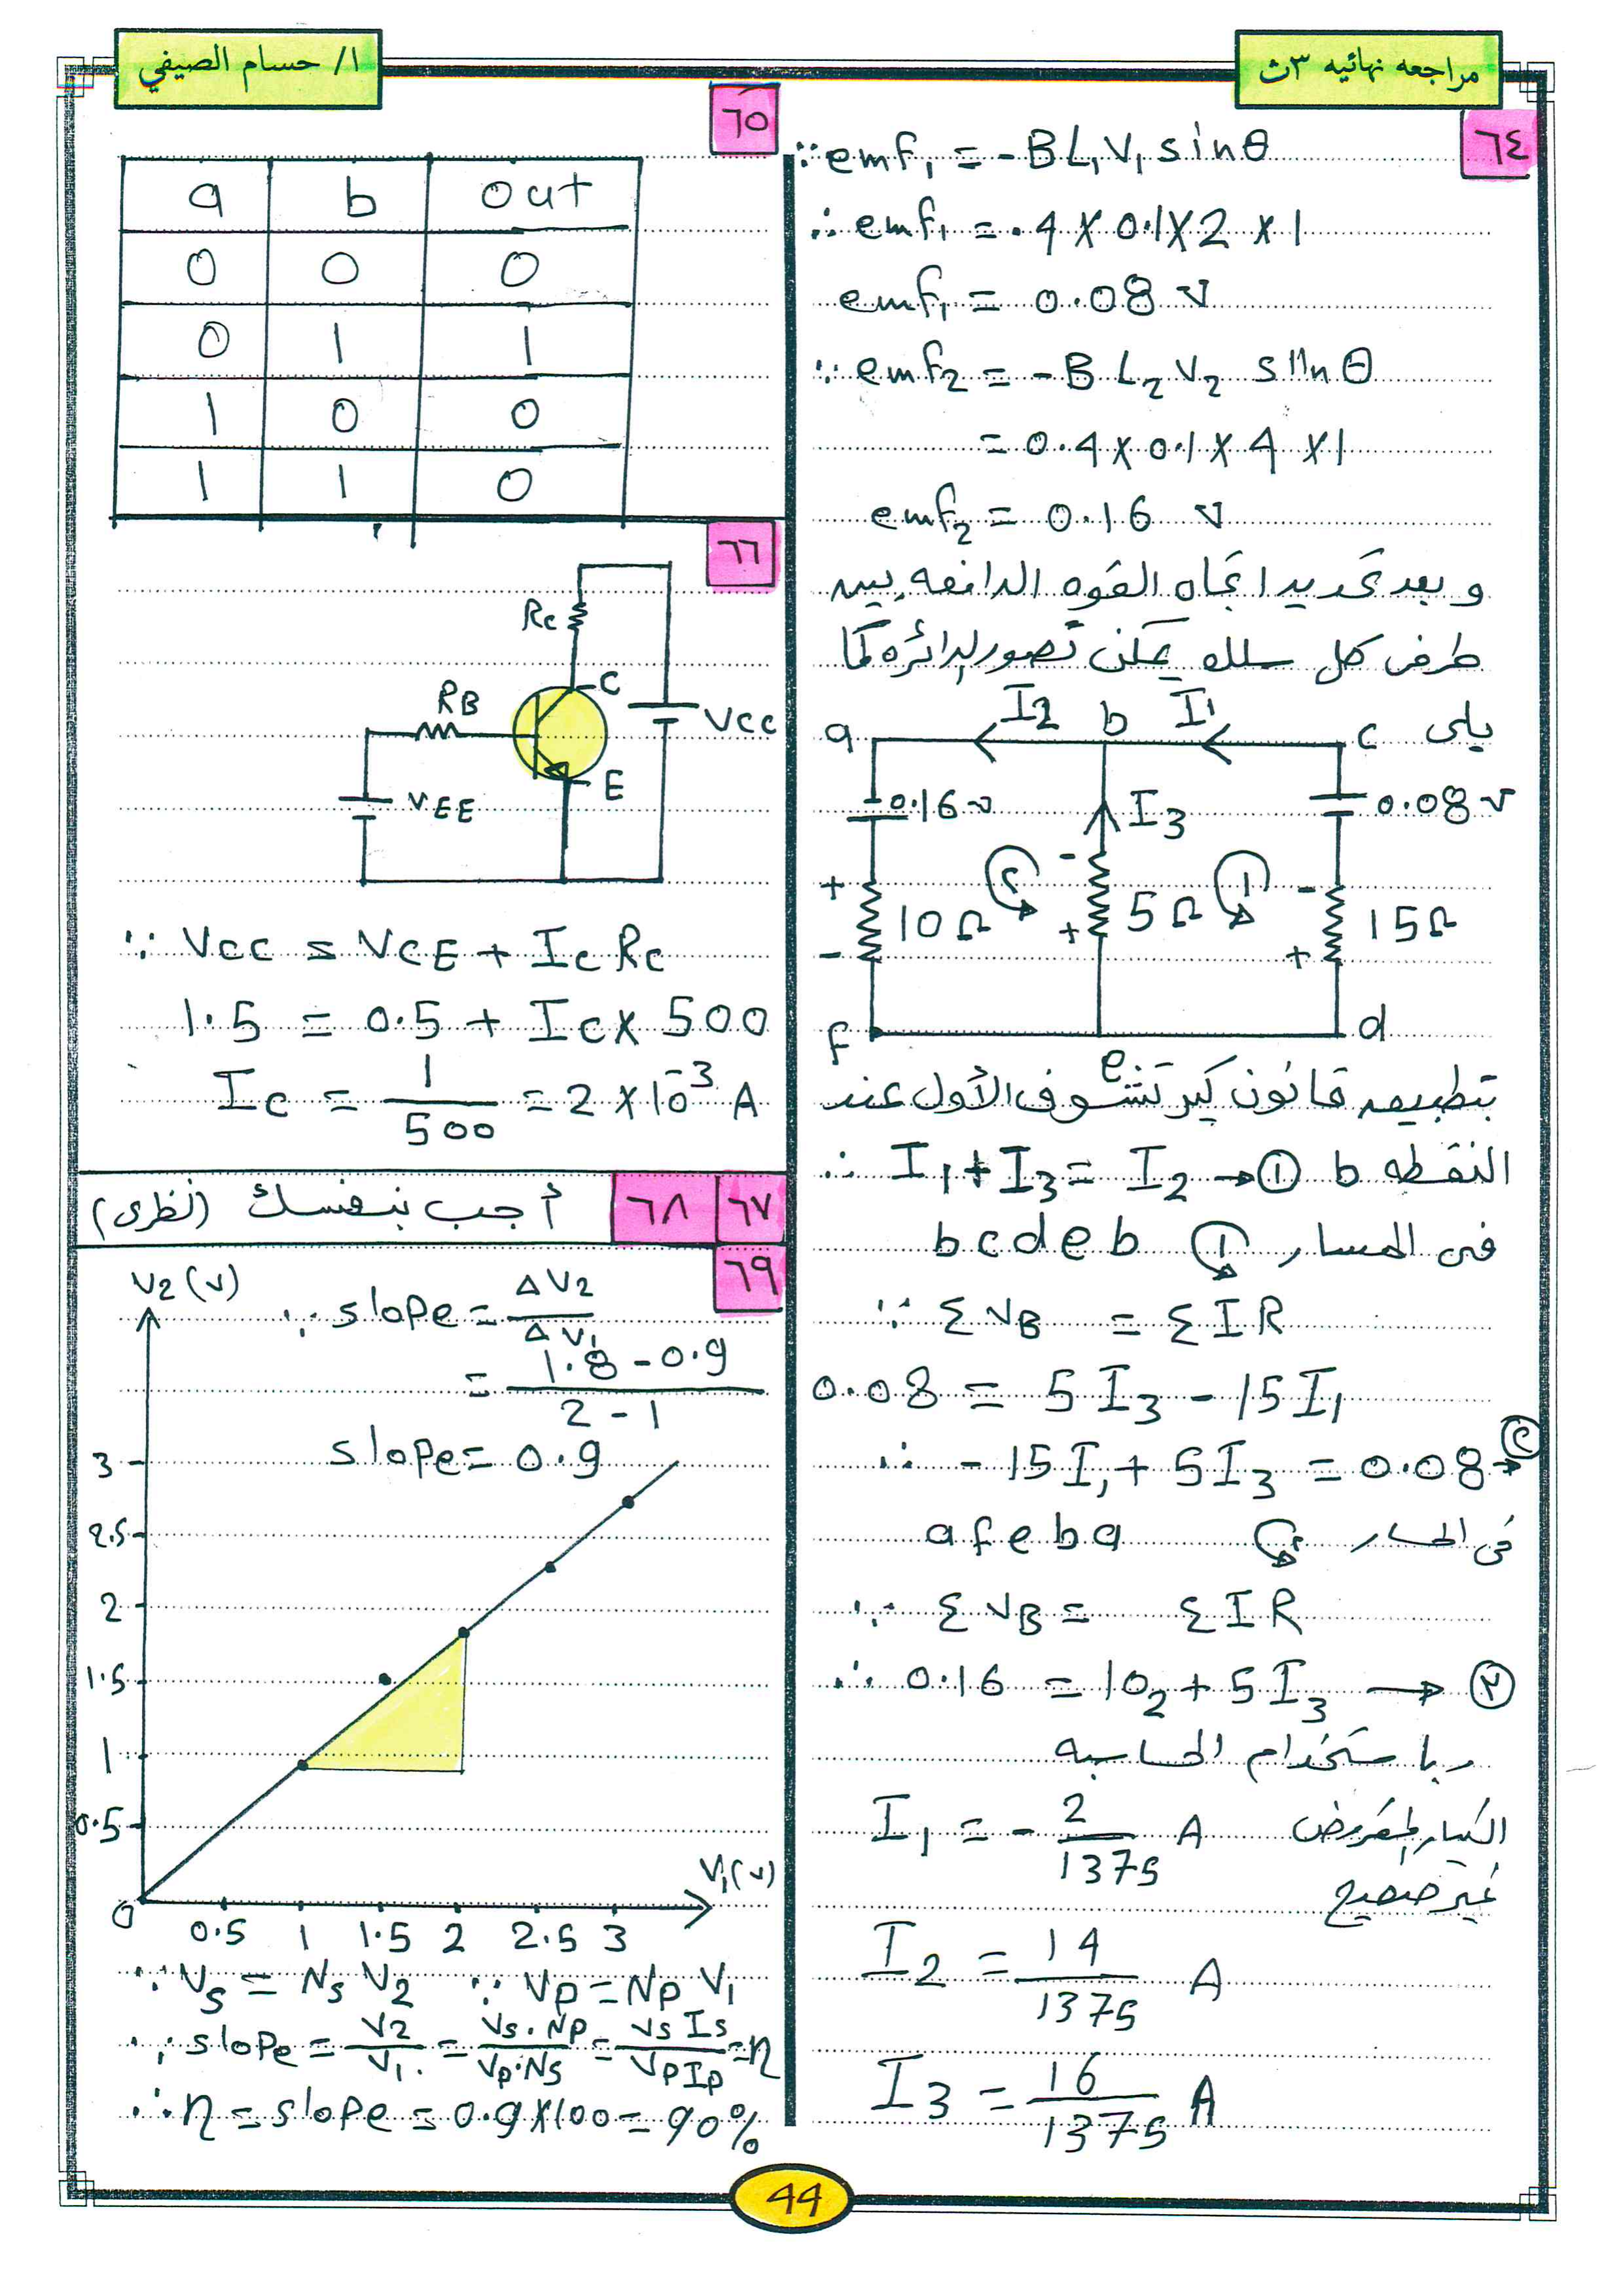 مراجعه نهائيه ٣ث
ا/ حسام الصيفي
٦٤
∵ emf₁ = -BL₁V₁ sinθ
∴ emf₁ = .4 X 0.1X2 x 1
emf₁ = 0.08 V
∵ emf₂ = -B L₂ V₂ sinθ
= 0.4 X 0.1 X 4 X1
emf₂ = 0.16 V
و بعد تحديد اتجاه القوه الدافعه بين
طرفى كل سلك يمكن تصور الدائره كما
يلى
a I2 b I1 c
0.16v I3 0.08v
٢ ١
+ - + -
10Ω 5Ω 15Ω
- + +
f e d
بتطبيق قانون كيرتشوف الأول عند
النقطه b ∴ I₁+I₃= I₂ → ①
فى المسار ① bcdeb
∵ Σ VB = Σ IR
0.08 = 5I₃ - 15I₁
∴ -15I₁+ 5I₃ = 0.08 → ٢
فى المسار ٢ afeba
∵ Σ VB = Σ IR
∴ 0.16 = 10₂+ 5I₃ → ٣
وباستخدام الحاسبه
I₁ = - 2/1375 A التيار المفروض
غير صحيح
I₂ = 14/1375 A
I₃ = 16/1375 A
٦٥
a b out
0 0 0
0 1 1
1 0 0
1 1 0
٦٦
Rc
C
RB
Vcc
E
VEE
∵ Vcc = VCE + Ic Rc
1.5 = 0.5 + Ic X 500
Ic = 1/500 = 2 X10⁻³ A
٦٧ ٦٨ أجب بنفسك (نظرى)
٦٩
V2 (v)
∵ slope = ΔV2/ΔV₁
= 1.8 - 0.9/2 - 1
slope= 0.9
3
2.5
2
1.5
1
0.5
V₁(v)
0 0.5 1 1.5 2 2.5 3
∵ Vs = Ns V2 ∵ Vp = Np V₁
∴ slope = V2/V₁ = Vs.Np/Vp.Ns = Vs Is/Vp Ip = η
∴ η = slope = 0.9X100 = 90%
44